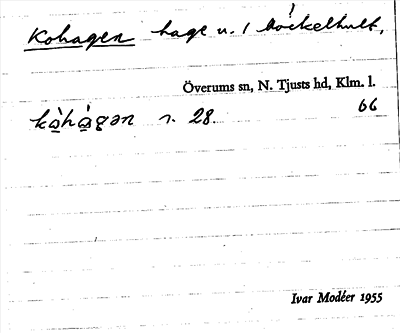 Kohagen hage u. 1 Böckelhult,
Överums sn, N. Tjusts hd, Klm. l.
66
kòhàgən s. 28.
Ivar Modéer 1955